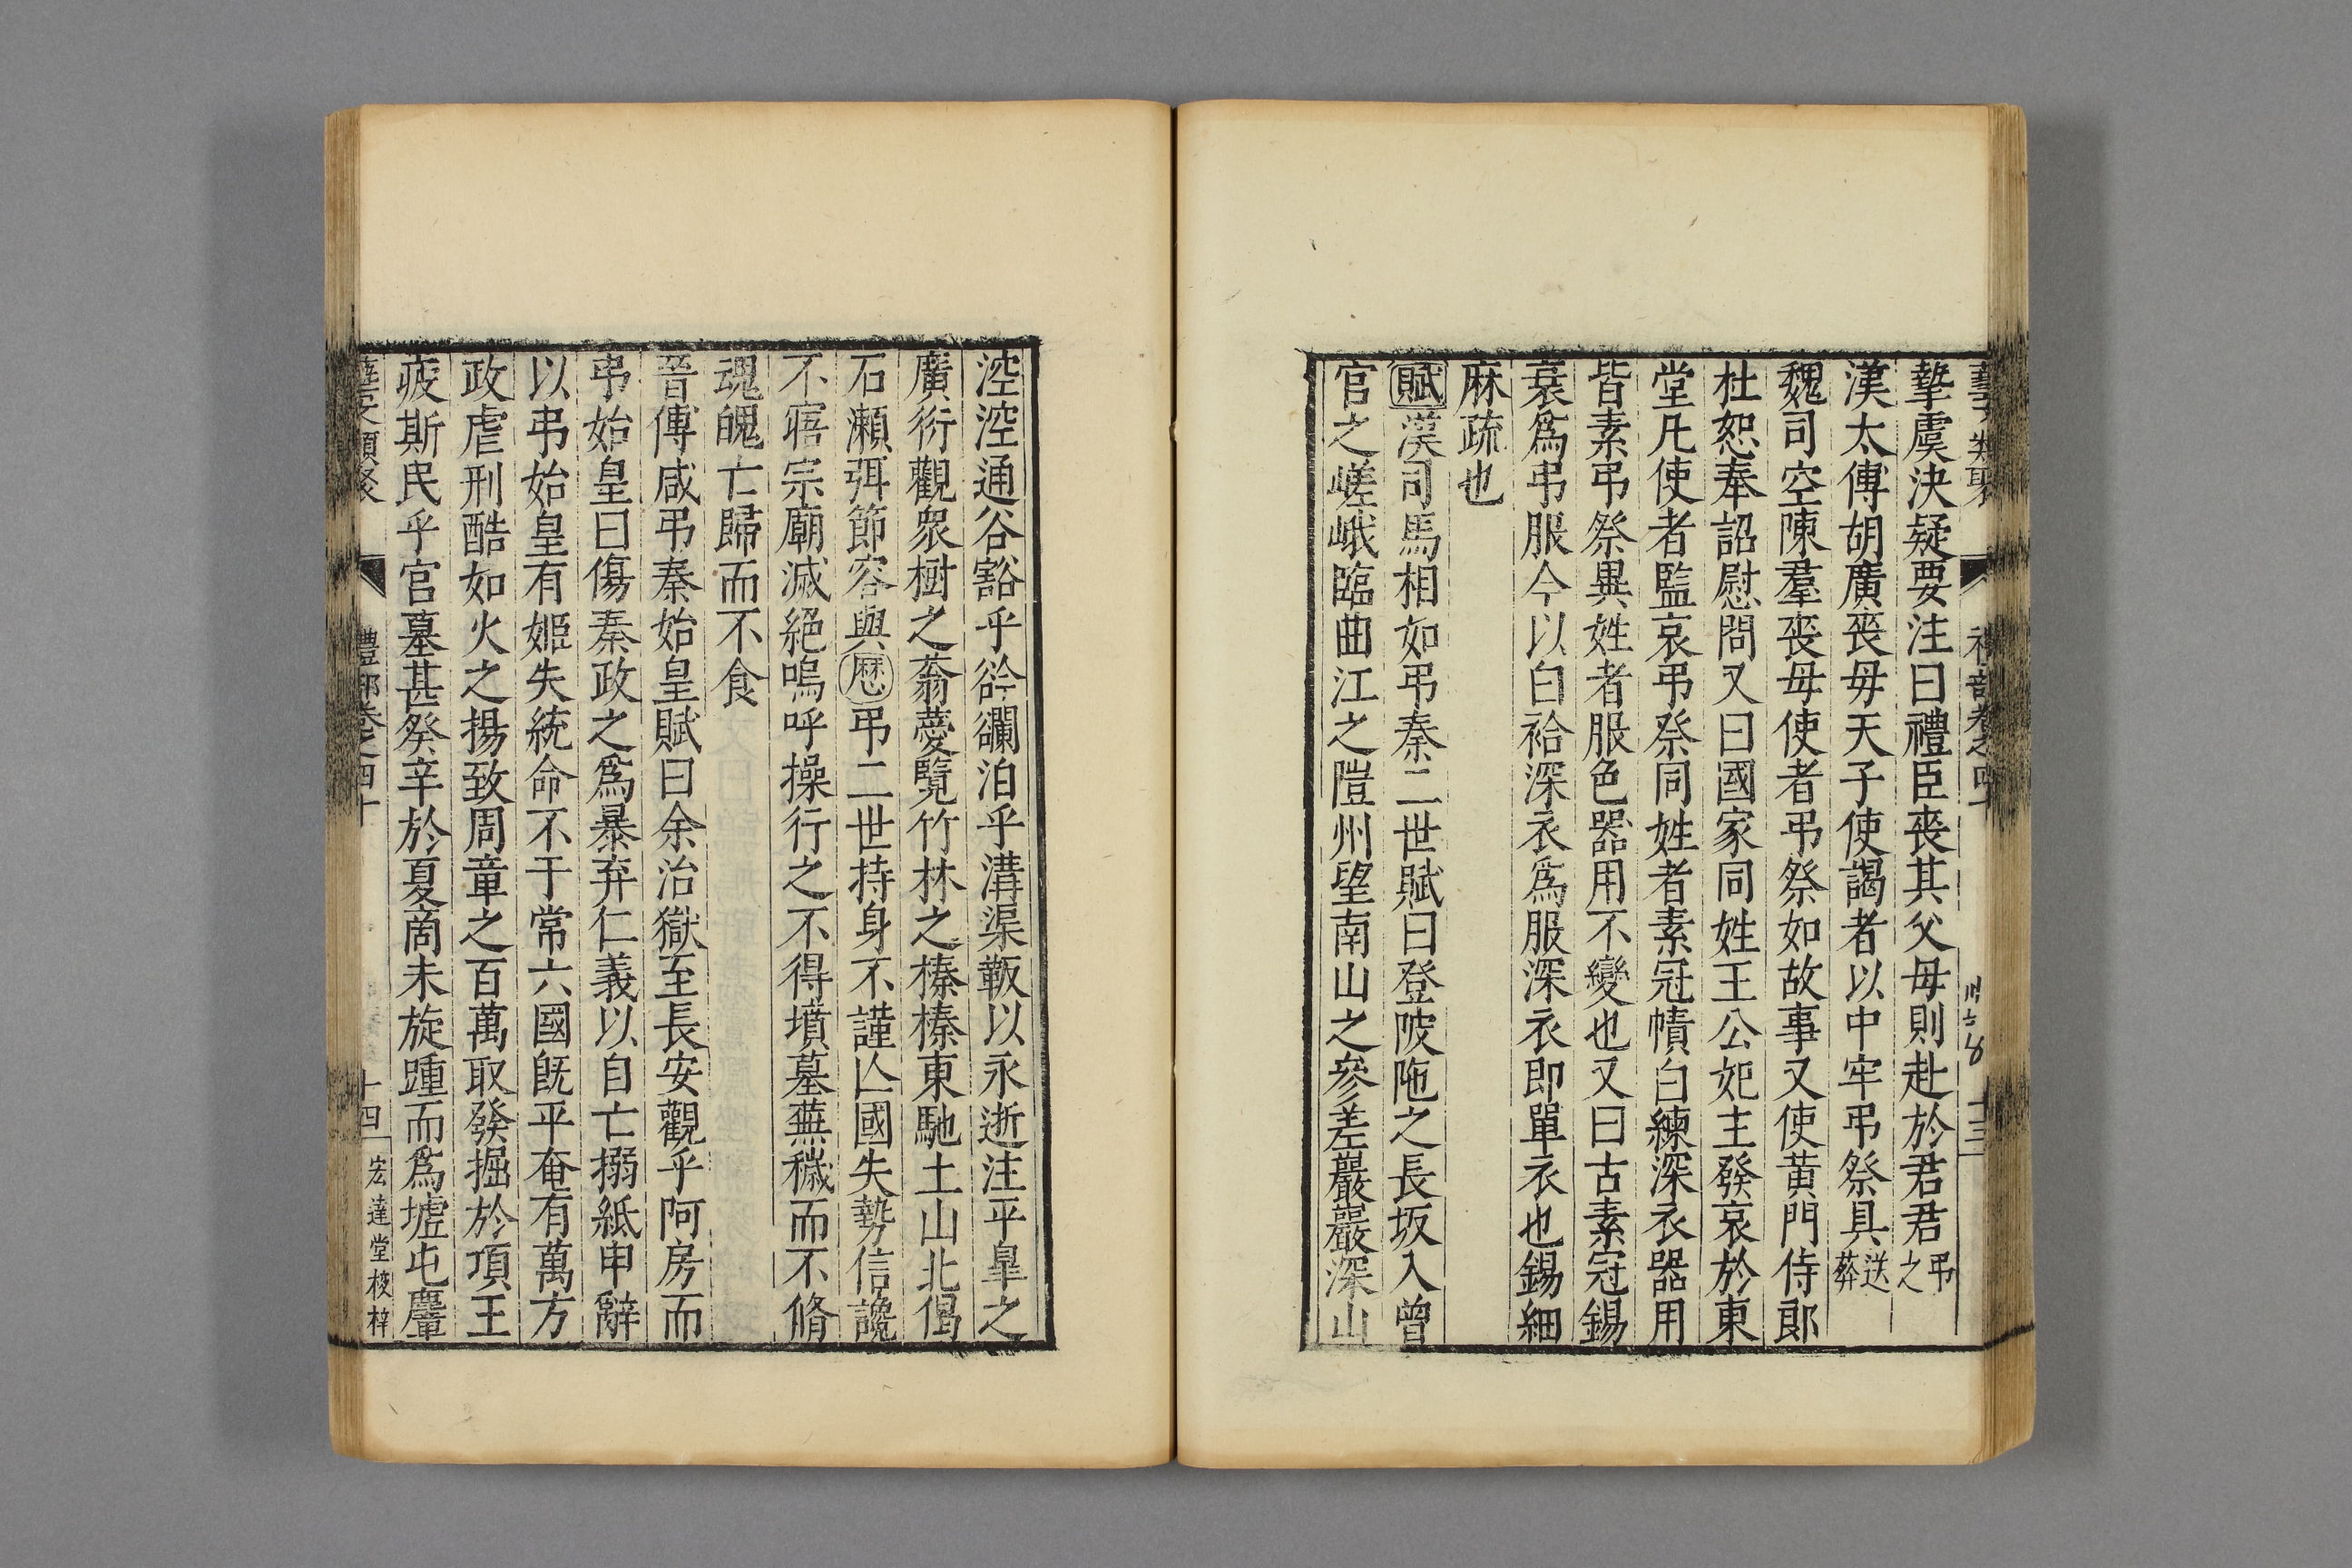 摯虞決疑要注曰禮臣喪其父母則赴於君君弔之
漢太傅胡廣喪母天子使謁者以中牢弔祭具送葬
魏司空陳羣喪母使者弔祭如故事又使黃門侍郎
杜恕奉詔慰問又曰國家同姓王公妃主發哀於東
堂凡使者監哀弔祭同姓者素冠幘白練深衣器用
皆素弔祭異姓者服色器用不變也又曰古素冠錫
衰爲弔服今以白袷深衣爲服深衣即單衣也錫細
麻疏也
賦漢司馬相如弔秦二世賦曰登陂陁之長坂入曾
官之嵯峨臨曲江之隑州望南山之參差巖巖深山
涳涳通谷豁乎谽𧯆泊乎溝渠䩗以永逝注平皐之
廣衍觀衆樹之蓊薆覽竹林之榛榛東馳土山北偈
石瀨弭節容與歷弔二世持身不謹亾國失勢信讒
不寤宗廟滅絕嗚呼操行之不得墳墓蕪穢而不脩
魂魄亡歸而不食
晉傅咸弔秦始皇賦曰余治獄至長安觀乎阿房而
弔始皇曰傷秦政之爲暴弃仁義以自亡搦紙申辭
以弔始皇有姬失統命不于常六國旣平奄有萬方
政虐刑酷如火之揚致周章之百萬取發掘於項王
疲斯民乎官墓甚癸辛於夏商未旋踵而爲墟屯麏
禮部卷之四十
十四
宏達堂校梓